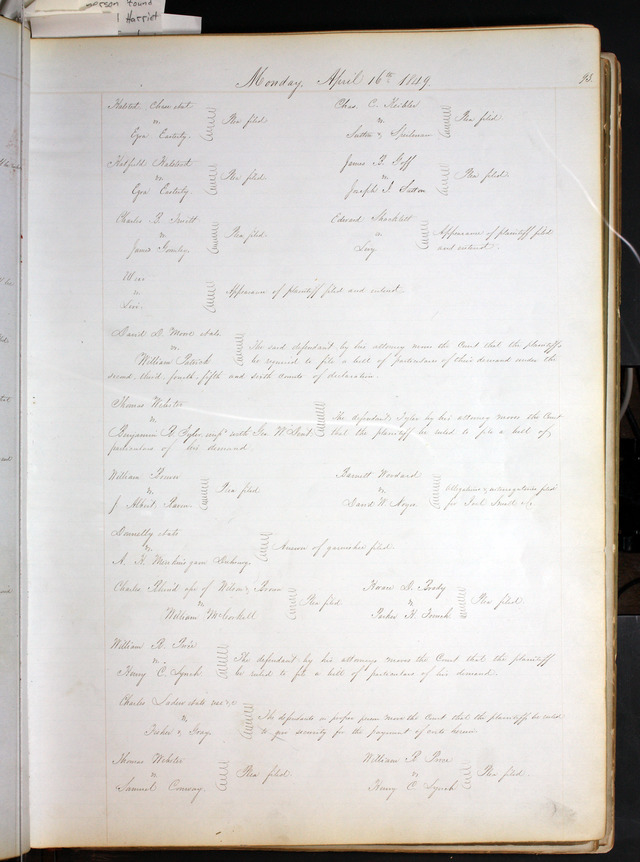 person found
Harriet
Monday, April 16th 1849
93.
Halstead Chase et al
vs.
Ezra Easterly.
Plea filed.
Chas. C. Keebler
vs
Sutton & Spielman
Plea filed.
Hatfield Halstead
vs
Ezra Easterly.
Plea filed.
James B. Goff
vs
Joseph J. Sutton
Plea filed.
Charles B.
vs
James
Plea filed.
Edward Shacklett
vs
Levy
Appearance of plaintiff filed
and entered.
vs
Levi
Appearance of plaintiff filed and entered.
David D. Moore et als
vs.
William Patrick
The said defendant by his attorney moves the Court that the plaintiffs
be required to file a bill of particulars of their demand under the
second, third, fourth, fifth and sixth counts of declaration.
Thomas Webster
vs
Benjamin B. Tyler, imp. with Geo. W. Dent
The defendant Tyler by his attorney moves the Court
that the plaintiff be ruled to file a bill of
particulars of his demand.
William Brown
vs.
J. Albert
Plea filed.
Barnett Woodard
vs.
David W.
Allegations & interrogatories filed
for Joel Small &c.
Donnelly et als
vs.
A. K.
Answer of garnishee filed.
Charles use of Nelson & Brown
vs
William McCorkell
Plea filed.
Horace D. Brady
vs
Parker H. French
Plea filed.
William R. Price
vs.
Henry C. Lynch
The defendant by his attorney moves the Court that the plaintiff
be ruled to file a bill of particulars of his demand.
Charles et als use &c
vs
Fisher & Gray.
The defendants in proper person move the Court that the plaintiffs be ruled
to give security for the payment of costs herein.
Thomas Webster
vs
Samuel Conway.
Plea filed.
William R. Price
vs
Henry C. Lynch
Plea filed.